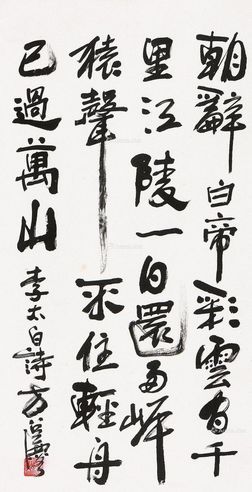 朝辭白帝彩雲間千
里江陵一日還兩岸
猿聲不住輕舟
已過萬山李太白詩方召麐